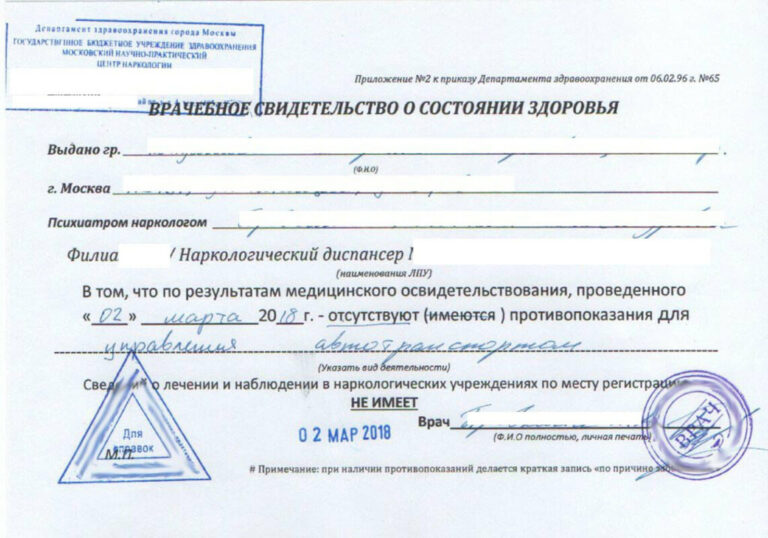 Департамент здравоохранения города Москвы
ГОСУДАРСТВЕННОЕ БЮДЖЕТНОЕ УЧРЕЖДЕНИЕ ЗДРАВООХРАНЕНИЯ
МОСКОВСКИЙ НАУЧНО-ПРАКТИЧЕСКИЙ
ЦЕНТР НАРКОЛОГИИ
Приложение №2 к приказу Департамента здравоохранения от 06.02.96 г. №65
ВРАЧЕБНОЕ СВИДЕТЕЛЬСТВО О СОСТОЯНИИ ЗДОРОВЬЯ
Выдано гр.
(Ф.И.О)
г. Москва
Психиатром наркологом
Филиа / Наркологический диспансер
(наименования ЛПУ)
В том, что по результатам медицинского освидетельствования, проведенного
« 02 » марта 2018 г. - отсутствуют (имеются ) противопоказания для
управления автотранспортом
(Указать вид деятельности)
о лечении и наблюдении в наркологических учреждениях по месту регистрации
НЕ ИМЕЕТ
Врач
02 МАР 2018
(Ф.И.О полностью, личная печать)
Для
справок
М.П.
ВРАЧ
# Примечание: при наличии противопоказаний делается краткая запись «по причине